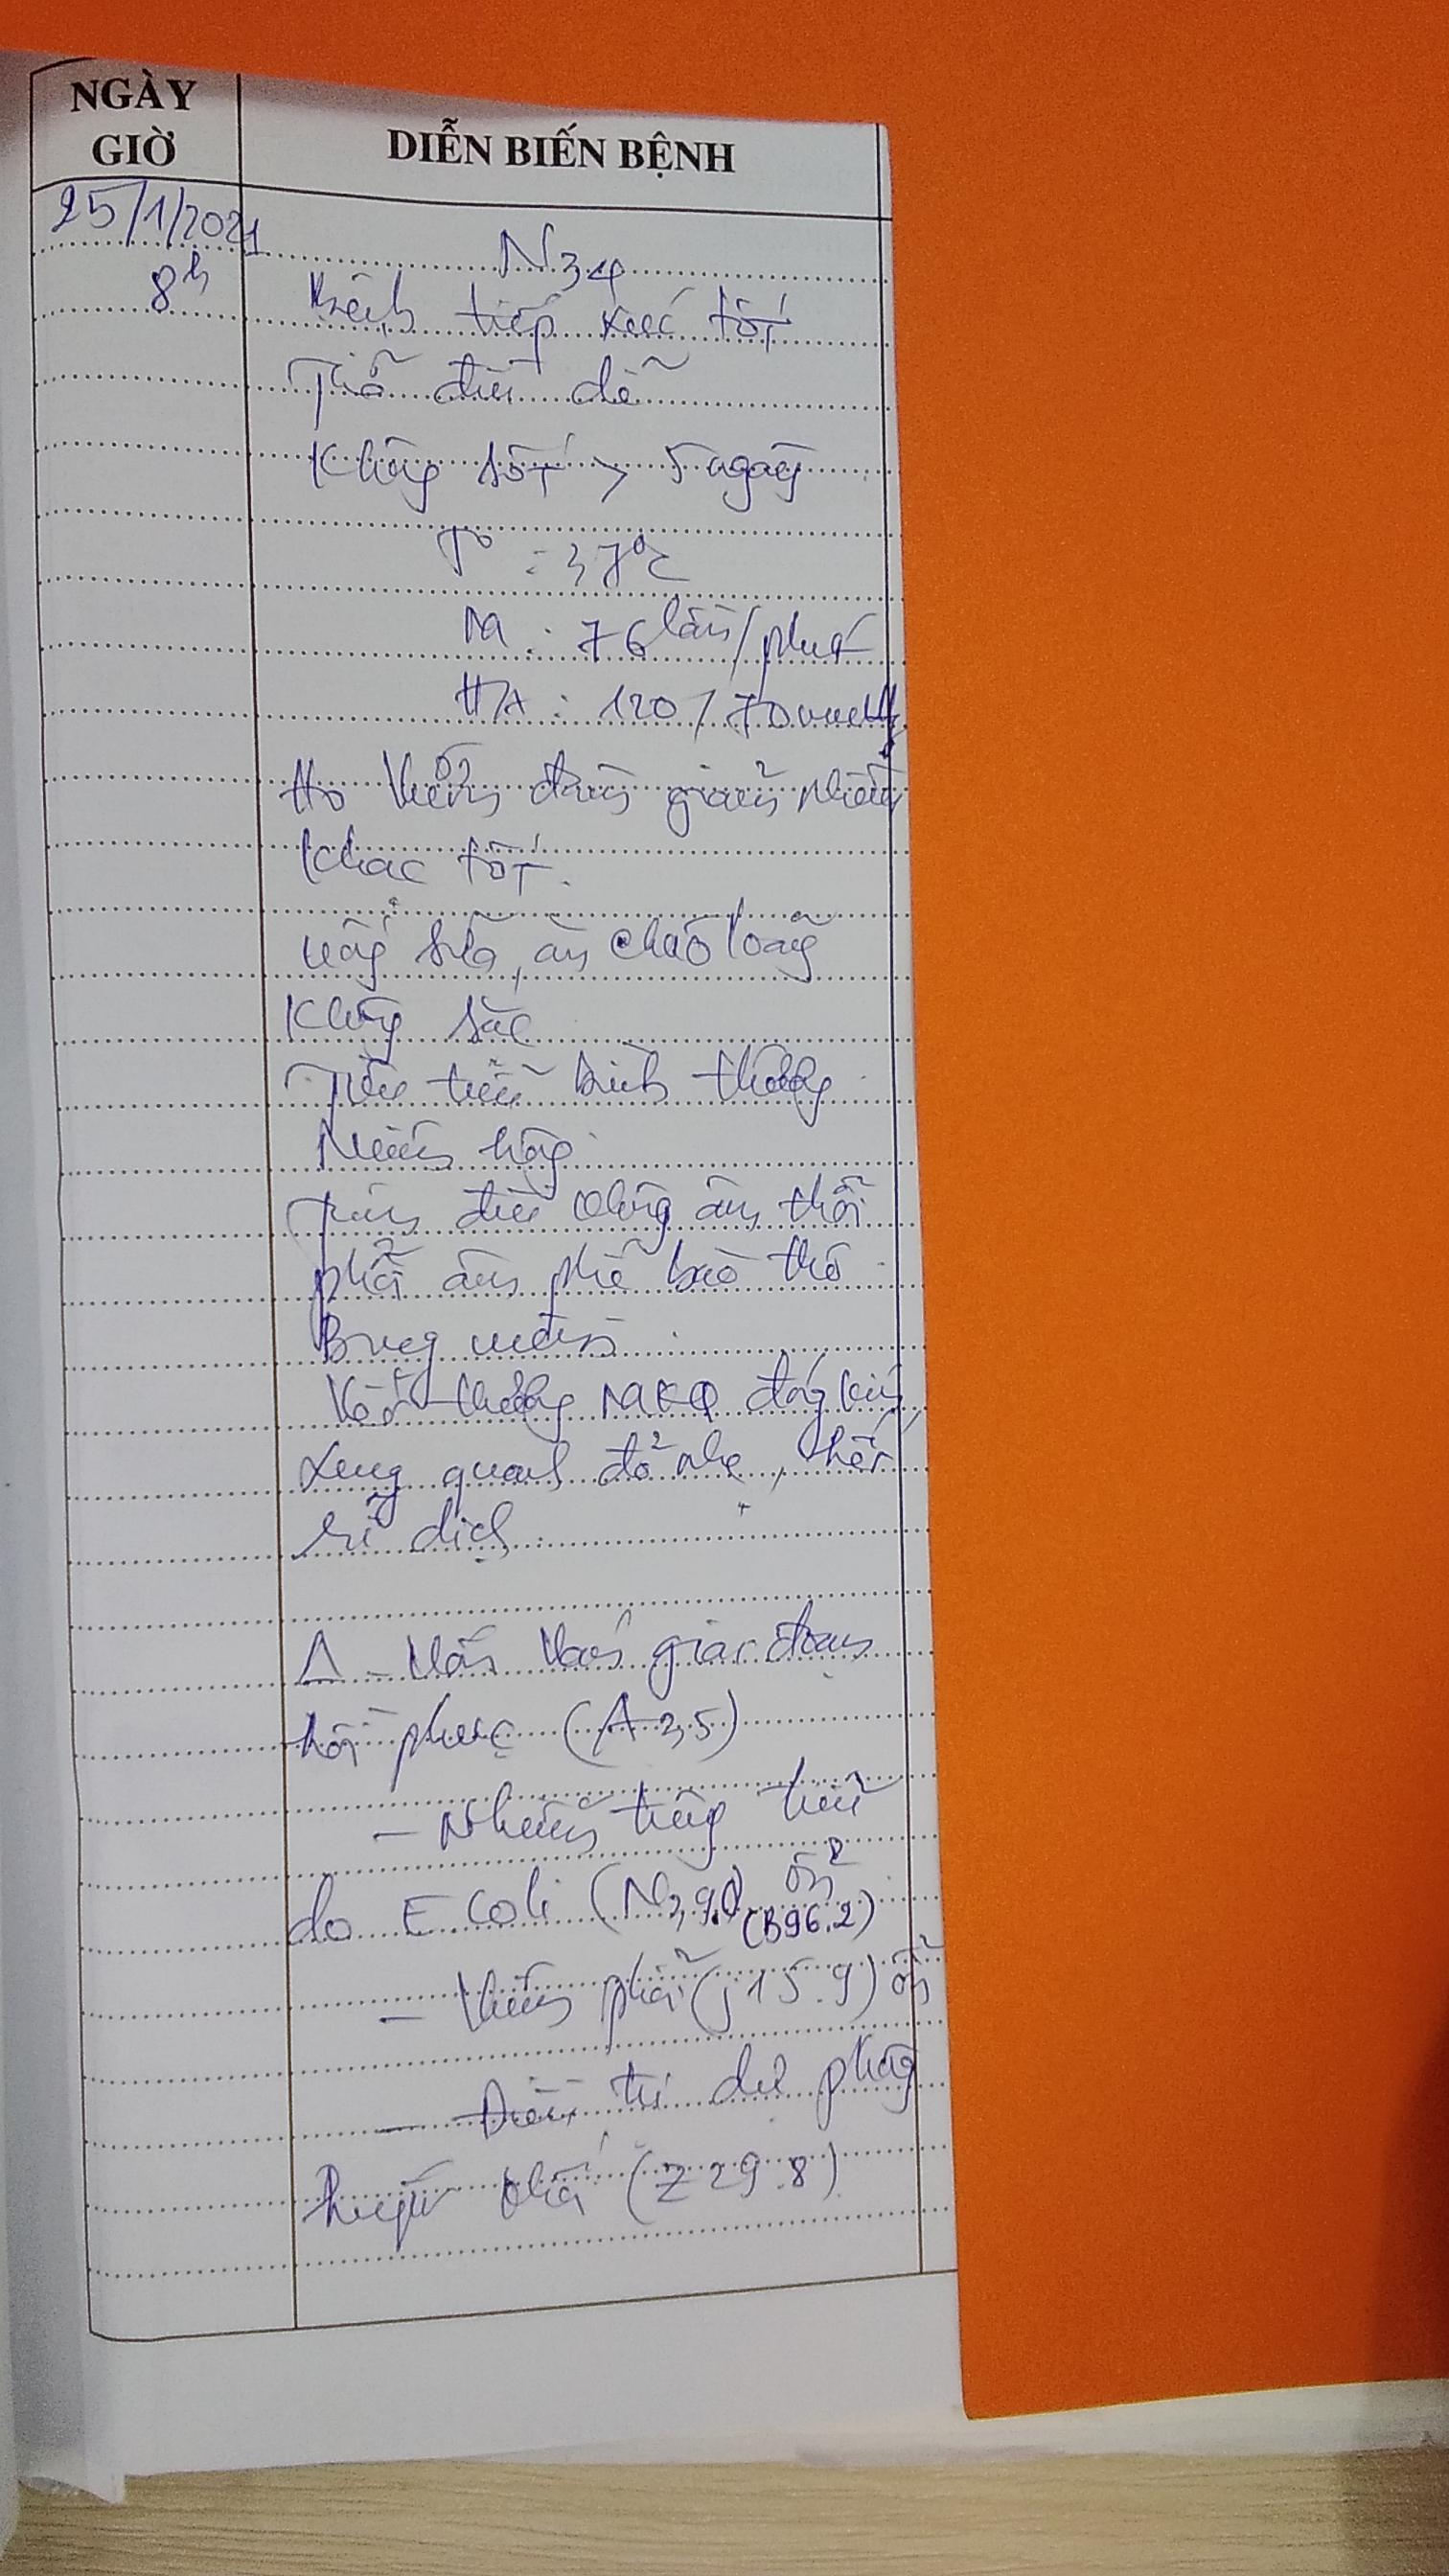 NGÀY
GIỜ
DIỄN BIẾN BỆNH
25/1/2021
8h
N34
Bệnh tiếp xúc tốt
Thở đều dễ
Không sốt > 5 ngày
T° : 37°C
M : 76 lần/phút
HA : 120/70mmHg
Ho đàm giảm nhiều
khạc tốt.
Uống sữa, ăn cháo loãng
Không sặc
Tiêu tiểu bình thường
Niêm hồng
Tim đều không âm thổi
phổi âm phế bào thô
Bụng mềm
Vết thương MKQ đóng kín
xung quanh đỏ nhẹ, hết
rỉ dịch
Δ - Uốn ván giai đoạn
hồi phục (A35)
- Nhiễm trùng tiểu
do E.Coli (N39.0) ổn
(B96.2)
- Viêm phổi (J15.9) ổn
- Điều trị dự phòng
huyết khối (Z29.8)